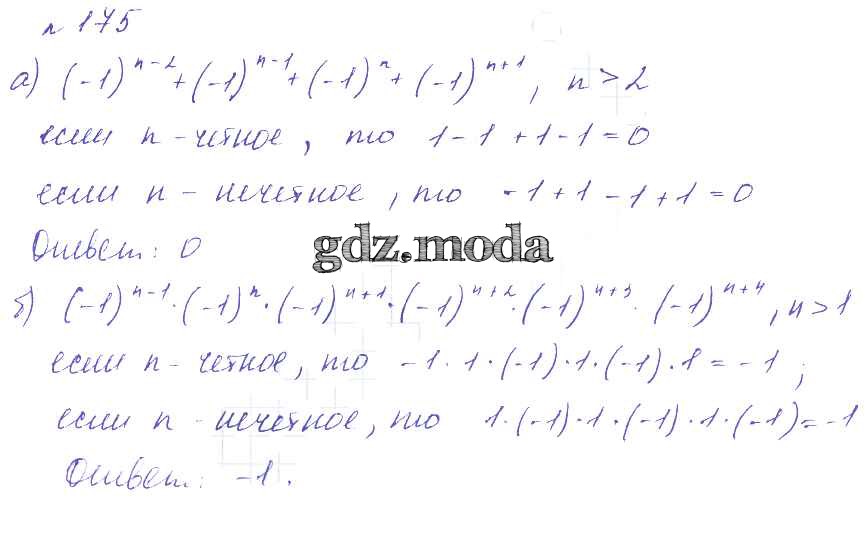 n 175
а) (-1)^{n-2} + (-1)^{n-1} + (-1)^{n} + (-1)^{n+1}, n > 2
если n - четное, то 1 - 1 + 1 - 1 = 0
если n - нечетное, то -1 + 1 - 1 + 1 = 0
Ответ: 0
gdz.moda
б) (-1)^{n-1} · (-1)^{n} · (-1)^{n+1} · (-1)^{n+2} · (-1)^{n+3} · (-1)^{n+4}, n > 1
если n - четное, то -1 · 1 · (-1) · 1 · (-1) · 1 = -1;
если n - нечетное, то 1 · (-1) · 1 · (-1) · 1 · (-1) = -1
Ответ: -1.